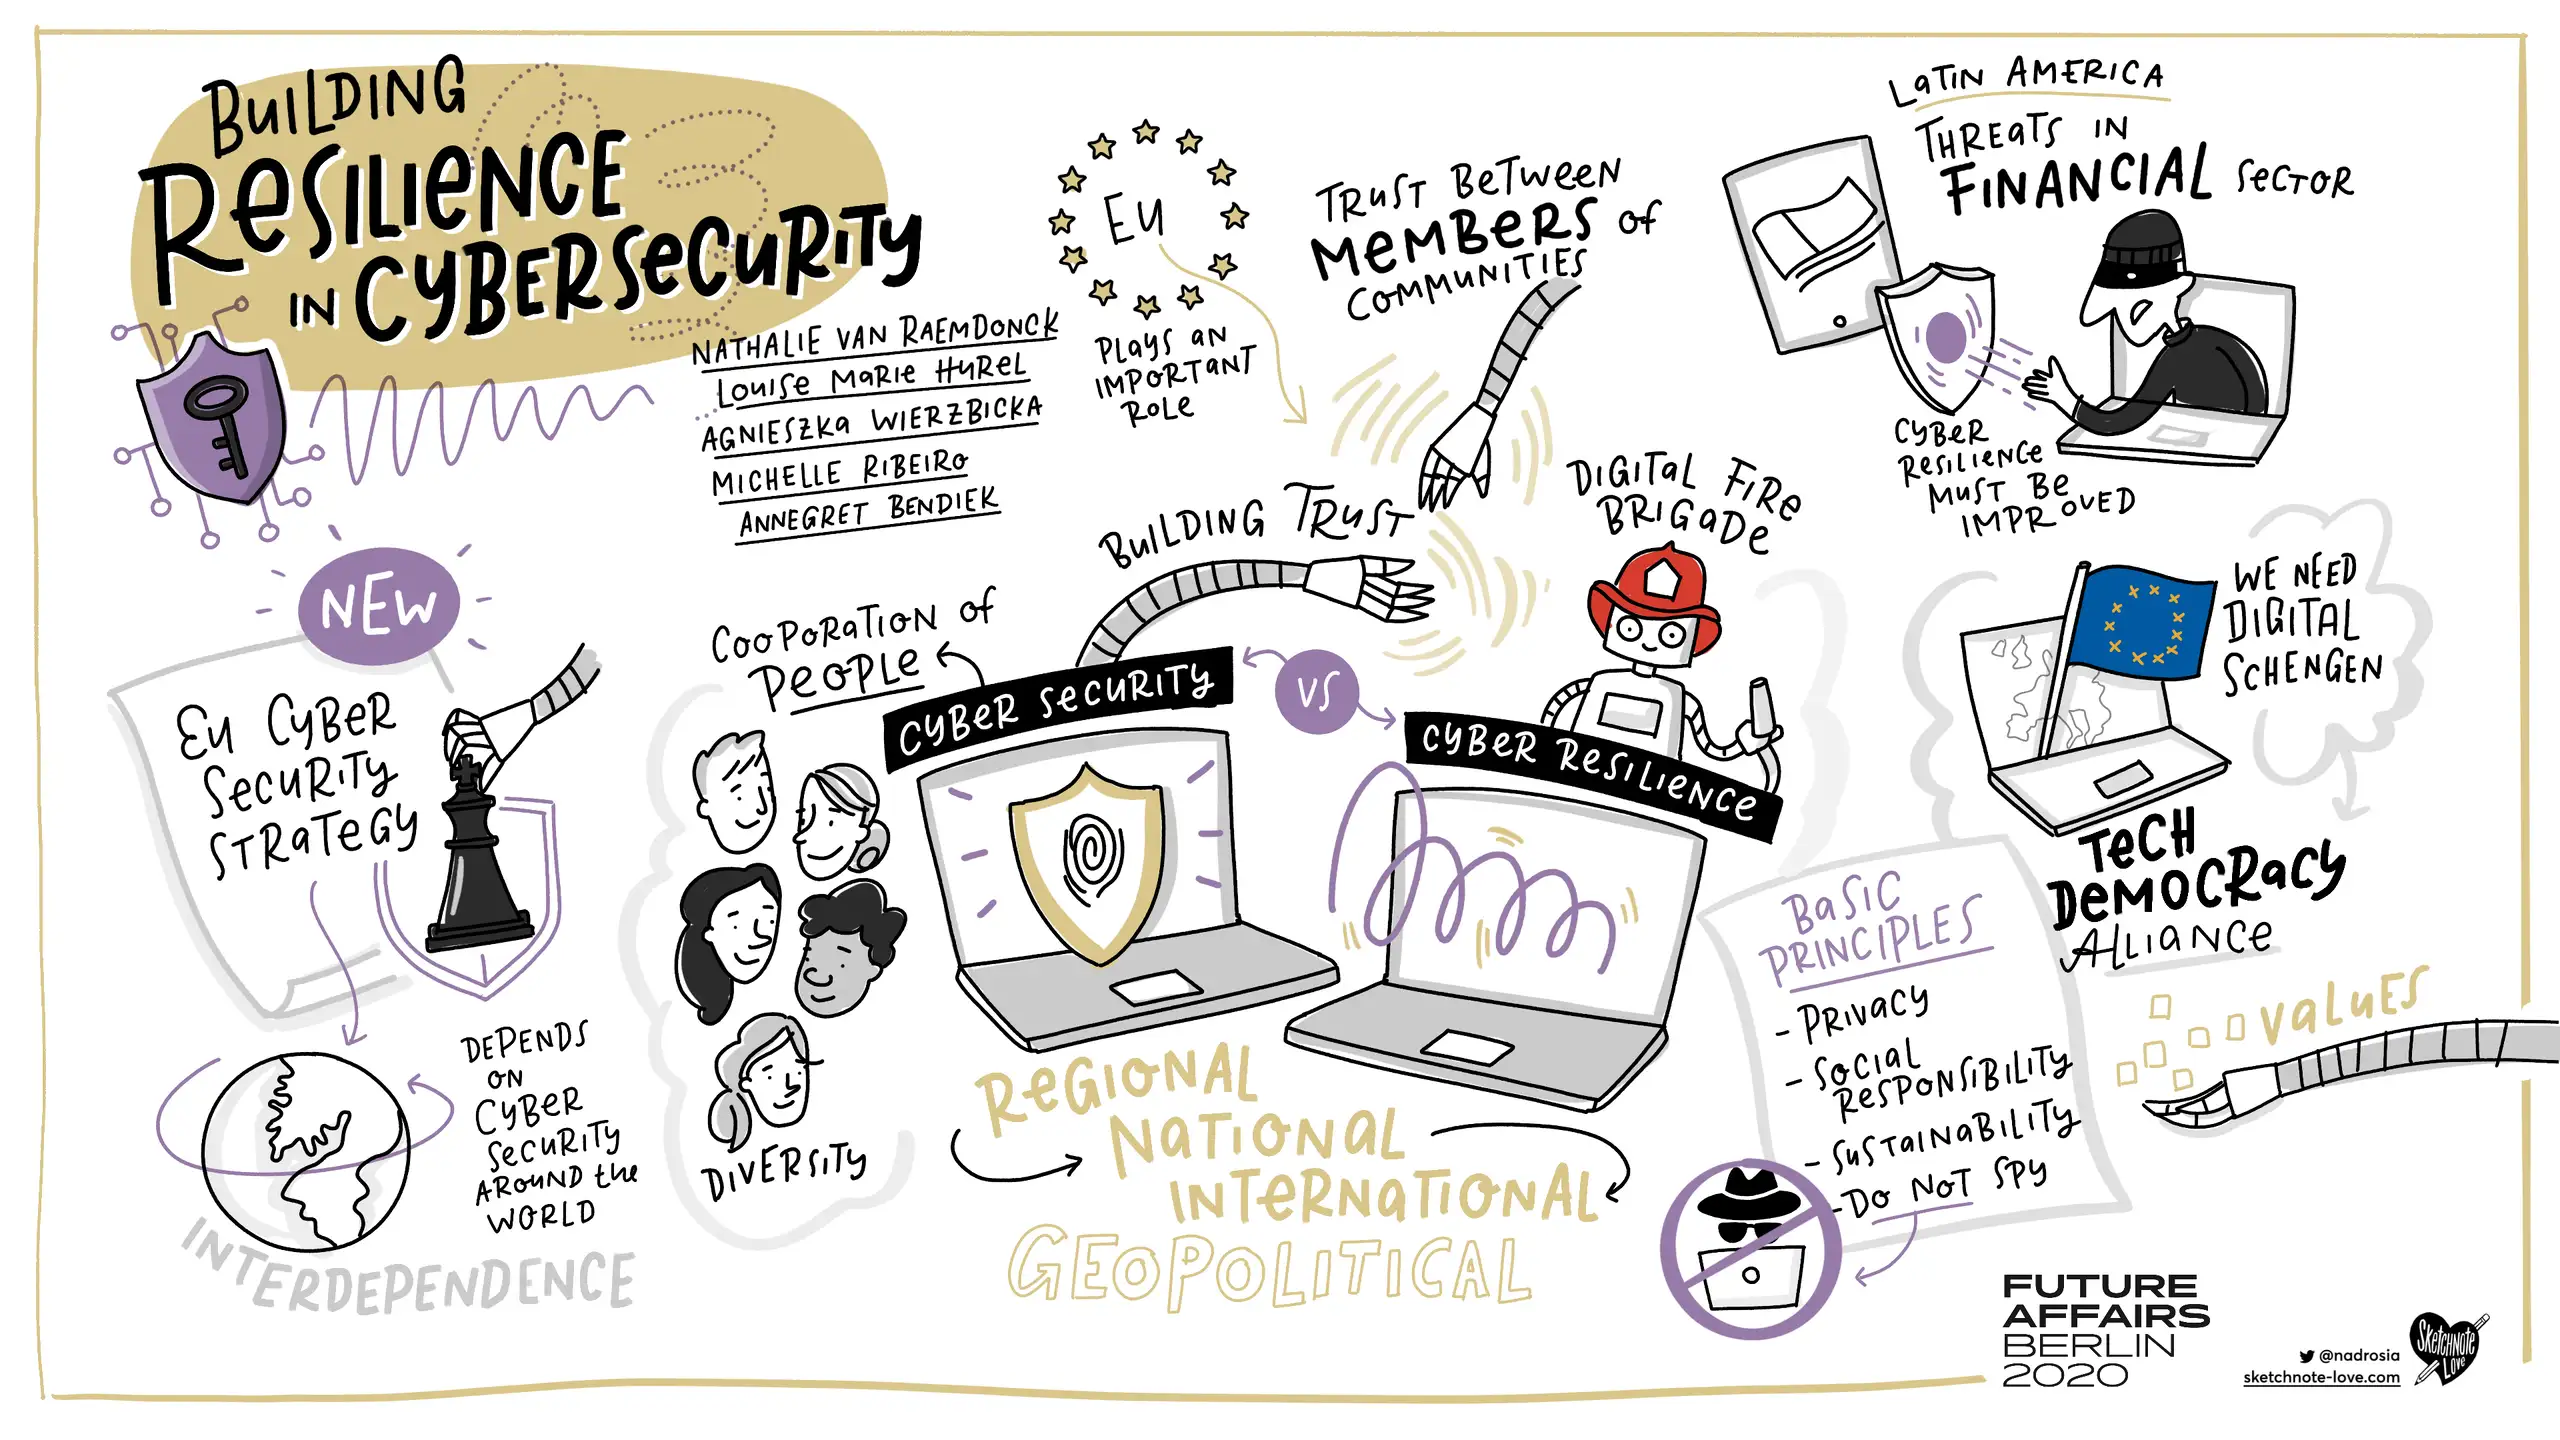 BUILDING
RESILIENCE
IN CYBERSECURITY
NATHALIE VAN RAEMDONCK
LOUISE MARIE HUREL
AGNIESZKA WIERZBICKA
MICHELLE RIBEIRO
ANNEGRET BENDIEK
EU
PLAYS AN
IMPORTANT
ROLE
TRUST BETWEEN
MEMBERS OF
COMMUNITIES
BUILDING TRUST
LATIN AMERICA
THREATS IN
FINANCIAL SECTOR
CYBER
RESILIENCE
MUST BE
IMPROVED
DIGITAL FIRE
BRIGADE
NEW
EU CYBER
SECURITY
STRATEGY
DEPENDS
ON
CYBER
SECURITY
AROUND the
WORLD
INTERDEPENDENCE
COOPORATION OF
PEOPLE
DIVERSITY
CYBER SECURITY
VS
CYBER RESILIENCE
REGIONAL
NATIONAL
INTERNATIONAL
GEOPOLITICAL
WE NEED
DIGITAL
SCHENGEN
TECH
DEMOCRACY
ALLIANCE
VALUES
BASIC
PRINCIPLES
- PRIVACY
- SOCIAL
RESPONSIBILITY
- SUSTAINABILITY
- DO NOT SPY
FUTURE
AFFAIRS
BERLIN
2020
@nadrosia
sketchnote-love.com
SKETCHNOTE
LOVE